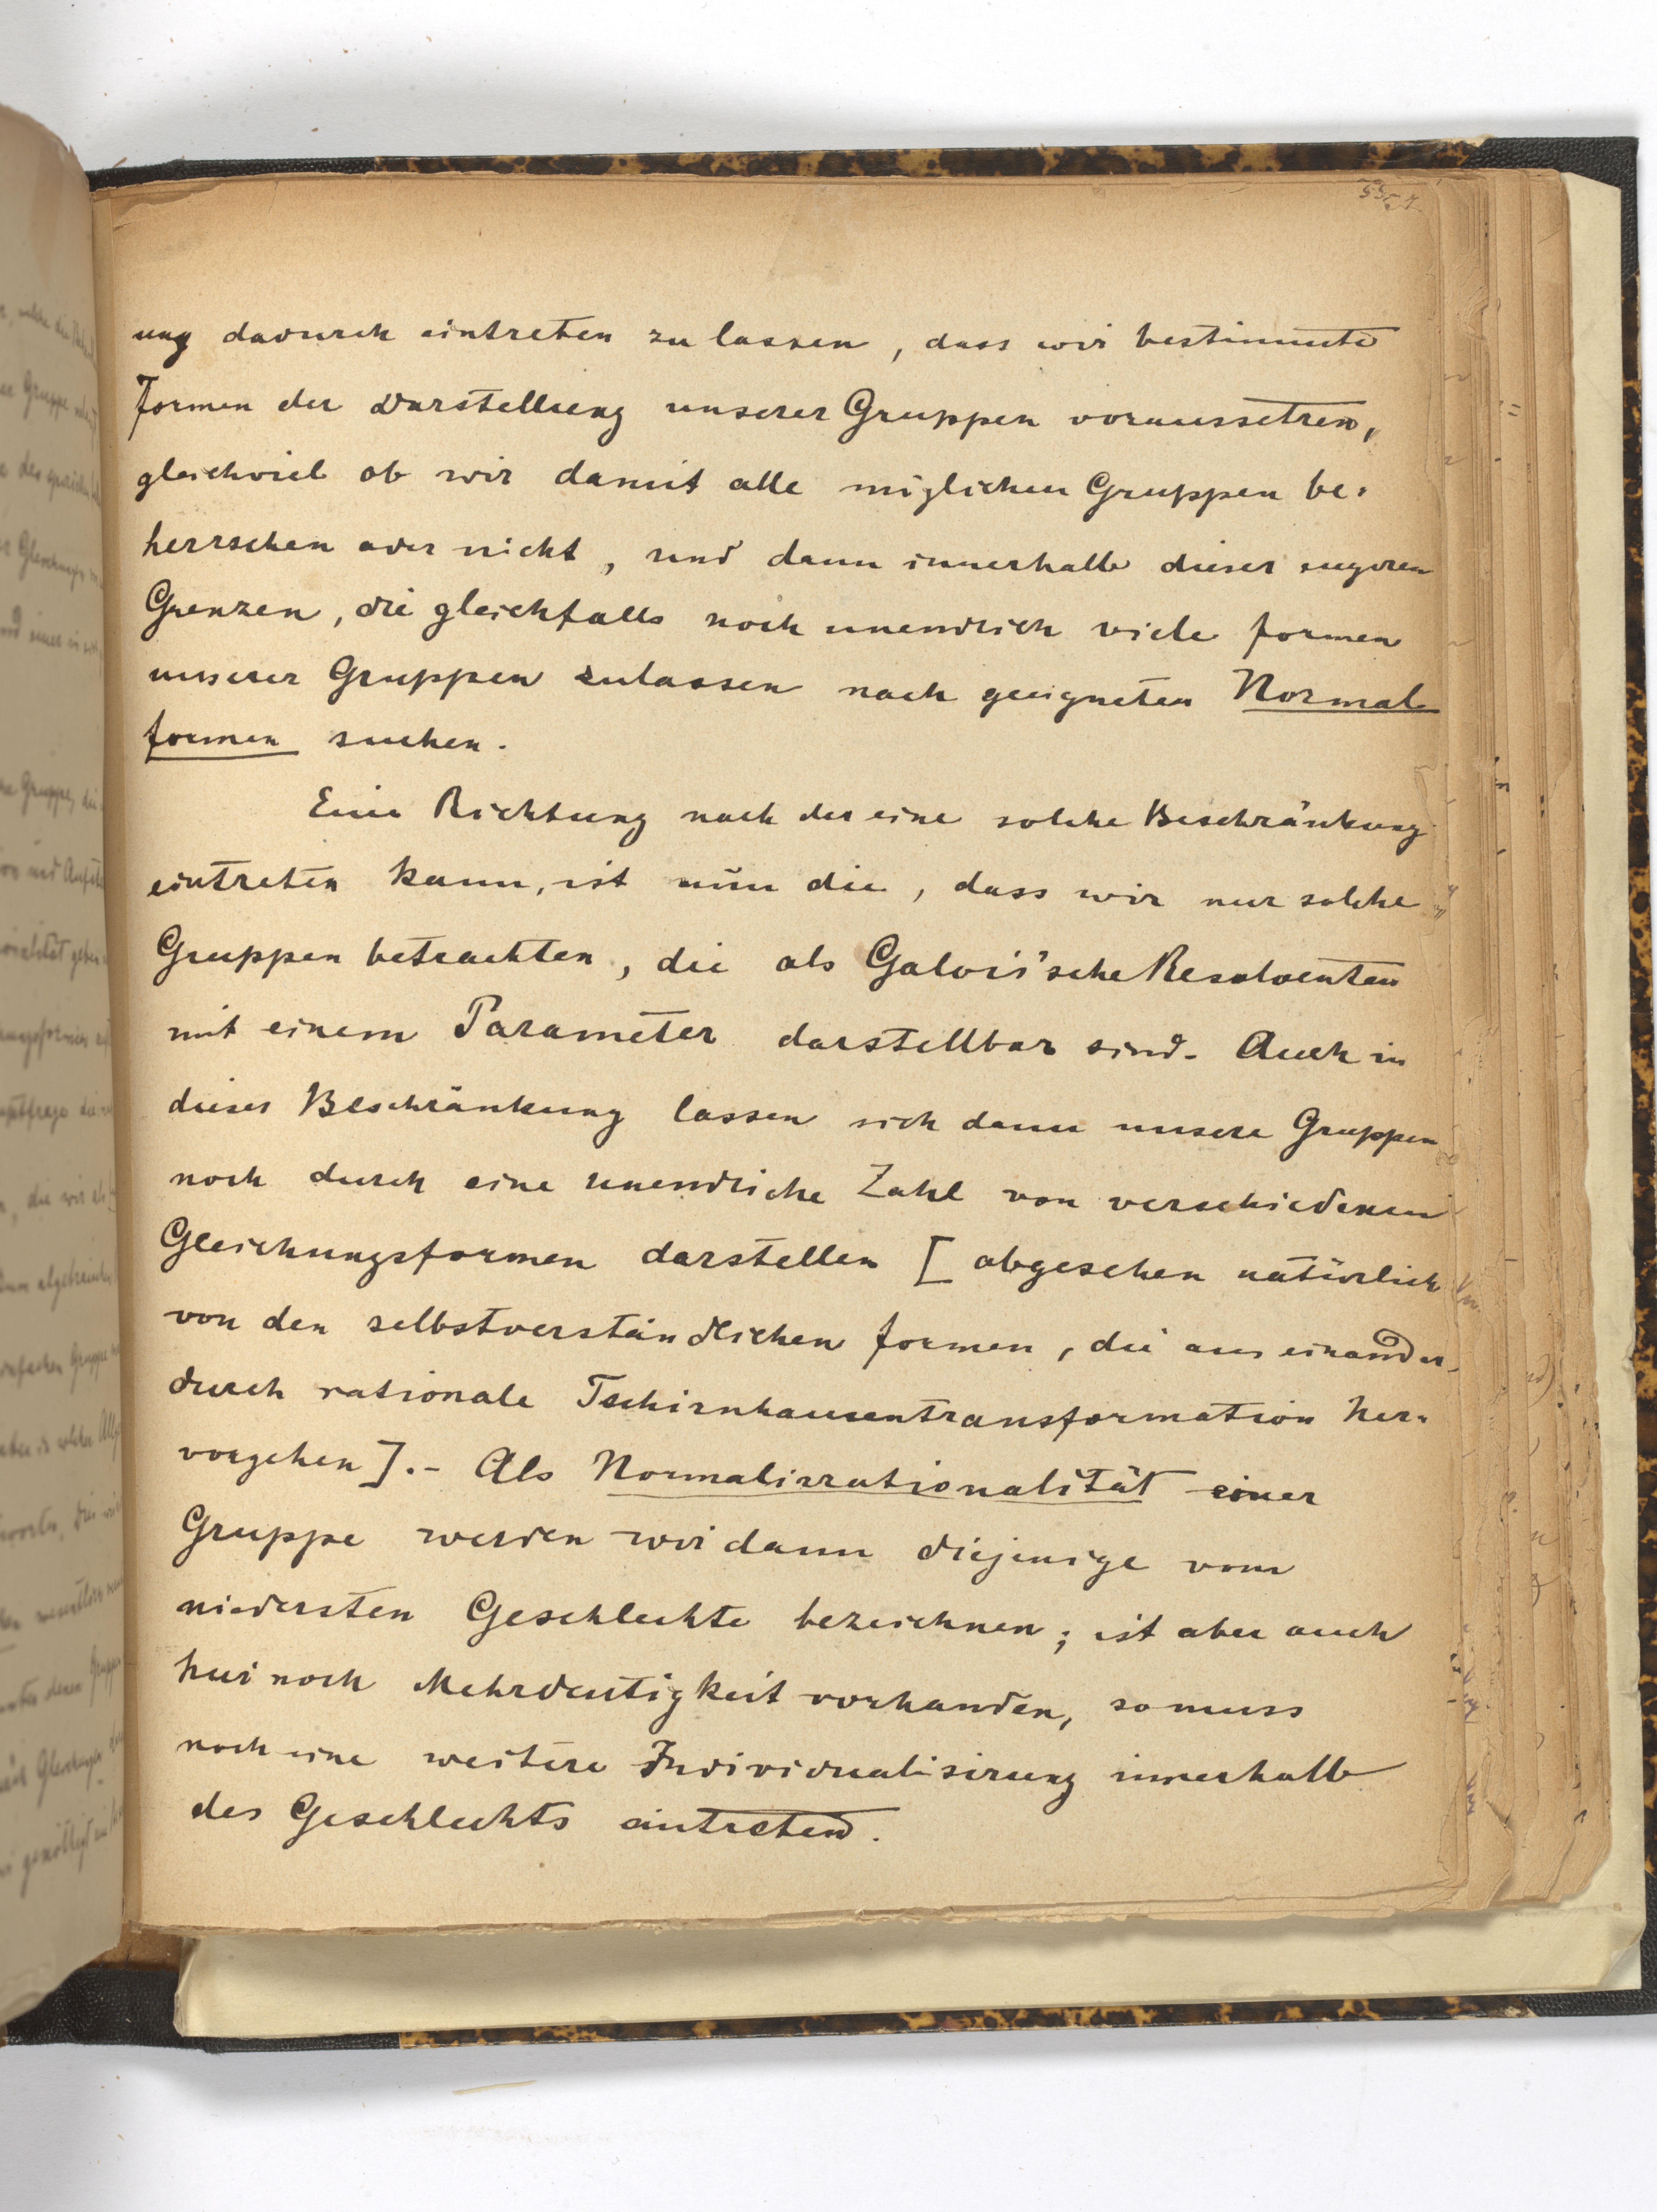 ung dadurch eintreten zu lassen, dass wir bestimmte
Formen der Darstellung unserer Gruppen voraussetzen,
gleichviel ob wir damit alle möglichen Gruppen be-
herrschen oder nicht, und dann innerhalb dieser engeren
Grenzen, die gleichfalls noch unendlich viele Formen
unserer Gruppen zulassen nach geeigneten Normal
formen suchen.
Eine Richtung nach der eine solche Beschränkung
eintreten kann, ist nŭn die, dass wir nur solche
Gruppen betrachten, die als Galois'sche Resolventen
mit einem Parameter darstellbar sind. Auch in
dieser Beschränkung lassen sich dann unsere Gruppen
noch durch eine unendliche Zahl von verschiedenen
Gleichungsformen darstellen [abgesehen natürlich
von den selbstverständlichen Formen, die aus einander
durch rationale Tschirnhausentransformation her-
vorgehen].- Als Normalirrationalität einer
Gruppe werden wir dann diejenige vom
niedersten Geschlechte bezeichnen; ist aber auch
hier noch Mehrdeutigkeit vorhanden, so muss
noch eine weitere Individualisirung innerhalb
des Geschlechts eintreten.